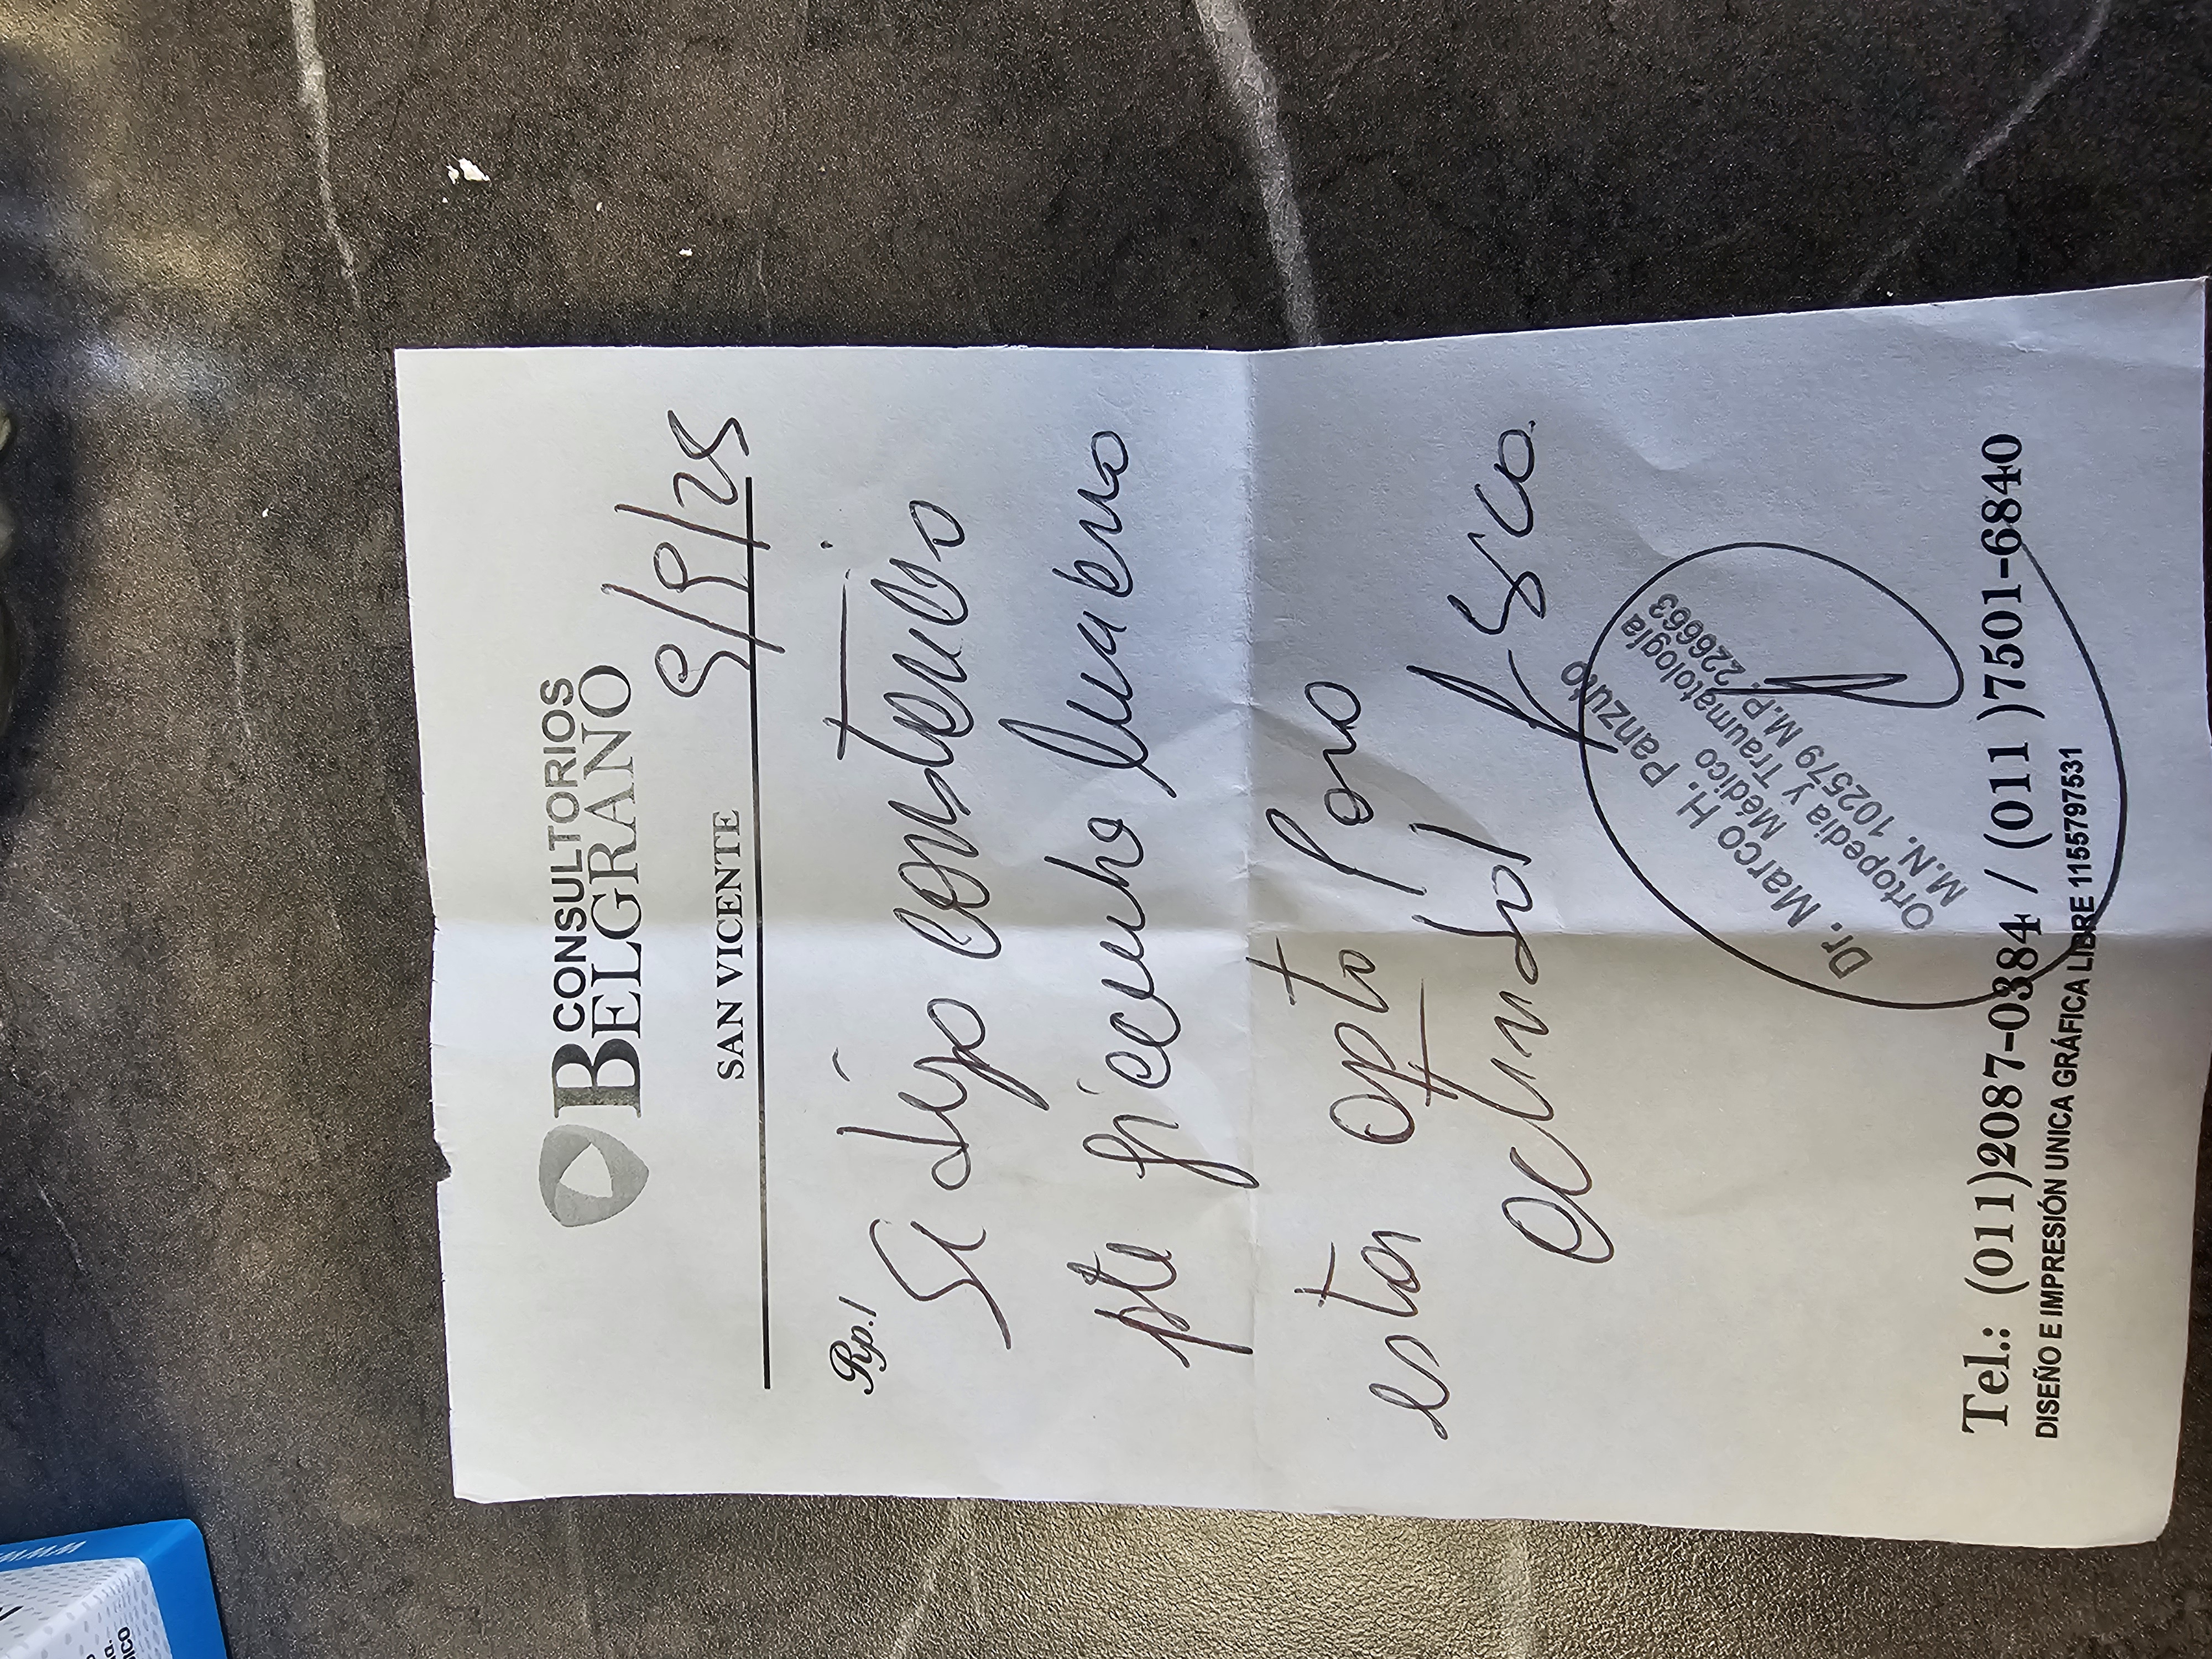 CONSULTORIOS
BELGRANO
SAN VICENTE
9/9/25
Rp./
Se deja constancia
pte
estar apto para
actividad física.
Dr. Marco H. Panzuto
Médico
Ortopedia y Traumatología
M.N. 102579 M.P. 226663
Tel.: (011)2087-0384 / (011)7501-6840
DISEÑO E IMPRESIÓN UNICA GRÁFICA LIBRE 1155797531